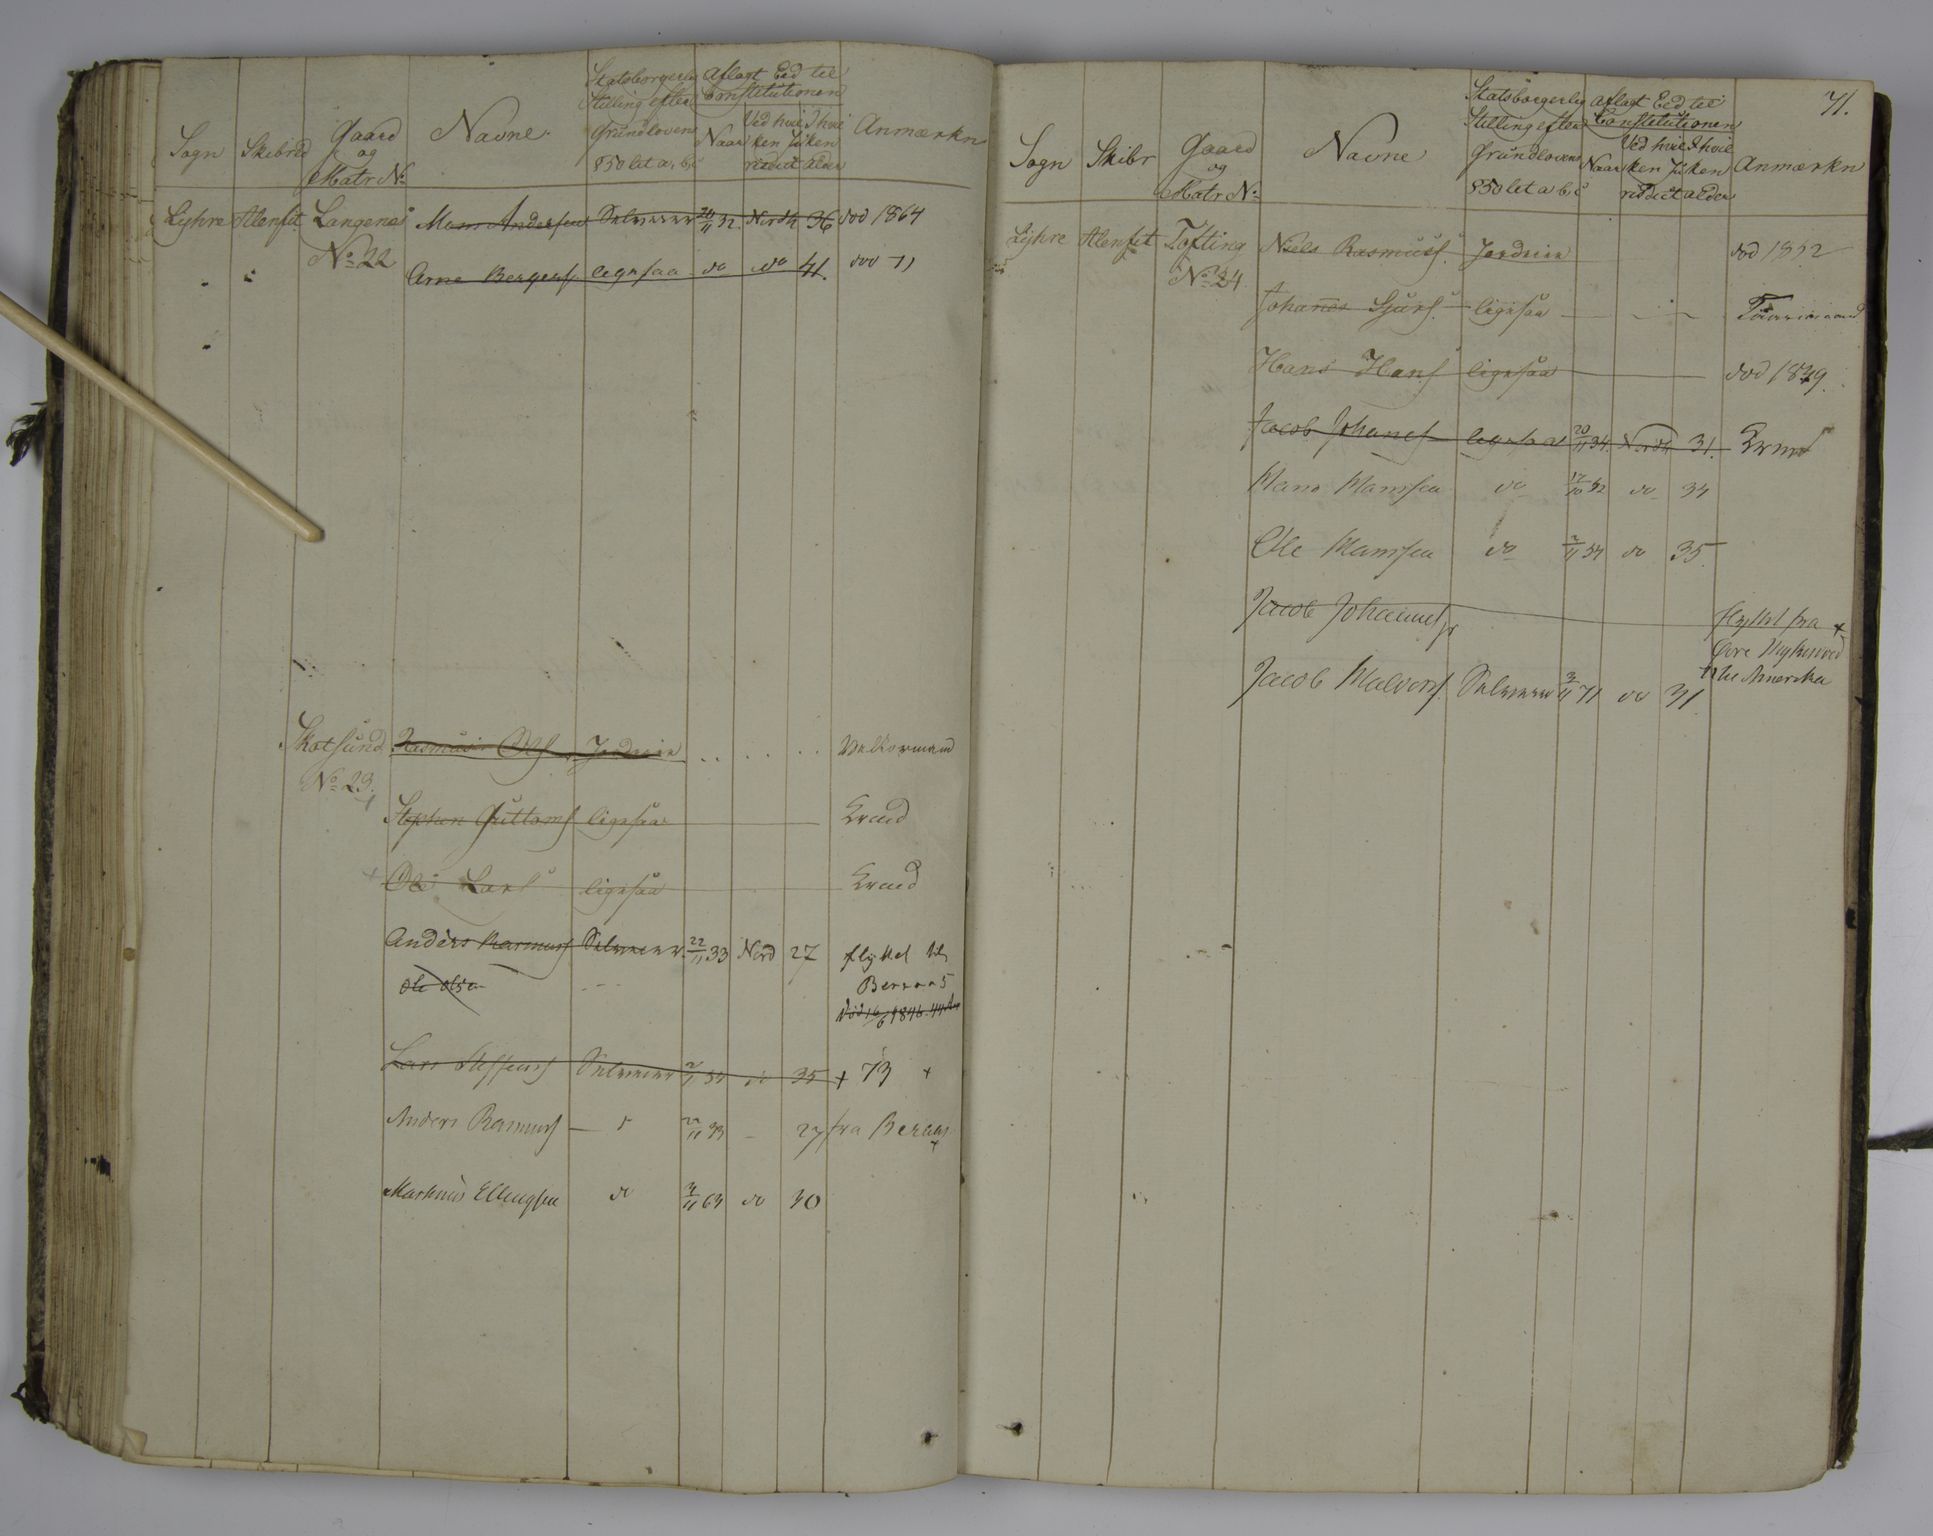 Sogn Skibred Gaard og Matr No Navne. Statsborgerlig Stilling efter Grundlovens § 50 let a, b, c Aflagt Eed til Constitutionen Naar Ved hvilken Jurisdict I hvilken alder Anmærkn
Lyhre Alenfit Langenes Mons Andersen Selveier 20/11 32. Nordh 36 død 1864
No 22 Arne Bergers. ligesaa do do 41. død 71
Skotsund Rasmus Ols. Jordeier Velkormand
No 23.
Stephan Guttoms ligesaa Erend
Ole Lars ligesaa Erend
Anders Rasmus Selveier 22/11 33 Nord 27 flyttet til
Ole Olsen Beraas
død 16/6 1846
Lars Steffens Selveier 2/11 54 do 35 + 73 +
Anders Rasmus — 22/11 33 - 27 fra Beraas
+
Markus Ellingsen do 4/11 64 do 40
71.
Sogn Skibr Gaard og Matr No Navne Statsborgerlig Stilling efter Grundlovens § 50 let a b, c Aflagt Eed til Constitutionen Naar Ved hvilken Jurisdict I hvilken alder Anmærkn
Lyhre Alenfit Tofting Niels Rasmus. Jordeier død 1852
No 24
Johanes Sjurs. ligesaa
Hans Hans ligesaa død 1849.
Jacob Johanes ligesaa 20/11 34. Nordh 31.
Mans Mansen do 17/10 42 do 34
Ole Mansen do 2/11 54 do 35.
Jacob Johannes jr flyttet fra +
Øvre
til Amerika
Jacob Halvors. Selveier 3/11 71 do 31